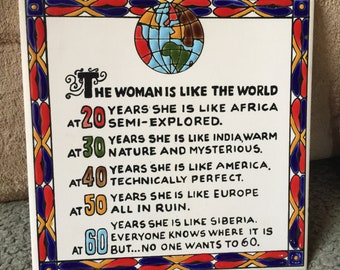 THE WOMAN IS LIKE THE WORLD
AT 20 YEARS SHE IS LIKE AFRICA
SEMI-EXPLORED.
AT 30 YEARS SHE IS LIKE INDIA, WARM
NATURE AND MYSTERIOUS.
AT 40 YEARS SHE IS LIKE AMERICA,
TECHNICALLY PERFECT.
AT 50 YEARS SHE IS LIKE EUROPE
ALL IN RUIN.
AT 60 YEARS SHE IS LIKE SIBERIA.
EVERYONE KNOWS WHERE IT IS
BUT...NO ONE WANTS TO GO.